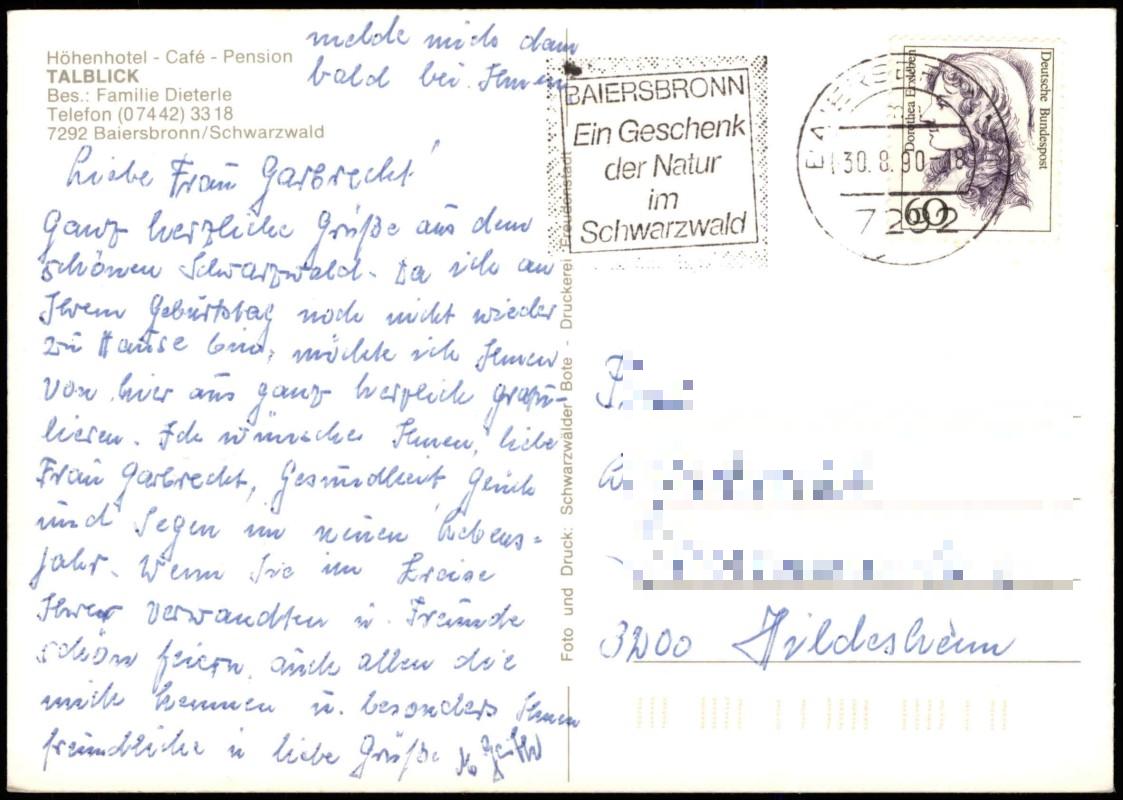 Höhenhotel - Café - Pension
TALBLICK
Bes.: Familie Dieterle
Telefon (07442) 3318
7292 Baiersbronn/Schwarzwald
melde mich dann
bald bei Ihnen
Liebe Frau Garbrecht!
Ganz herzliche Grüße aus dem
schönen Schwarzwald. Da ich an
Ihrem Geburtstag noch nicht wieder
zu Hause bin, möchte ich Ihnen
von hier aus ganz herzlich gratu-
lieren. Ich wünsche Ihnen, liebe
Frau Garbrecht, Gesundheit Glück
und Segen im neuen Lebens-
jahr. Wenn Sie im Kreise
Ihrer Verwandten u. Freunde
schön feiern, auch allen die
mich kennen u. besonders Ihnen
freundliche u liebe Grüße
Foto und Druck: Schwarzwälder Bote - Druckerei Freudenstadt
BAIERSBRONN
Ein Geschenk
der Natur
im
Schwarzwald
30.8.90-18
7292
Dorothea Erxleben
Deutsche Bundespost
60
3200 Hildesheim